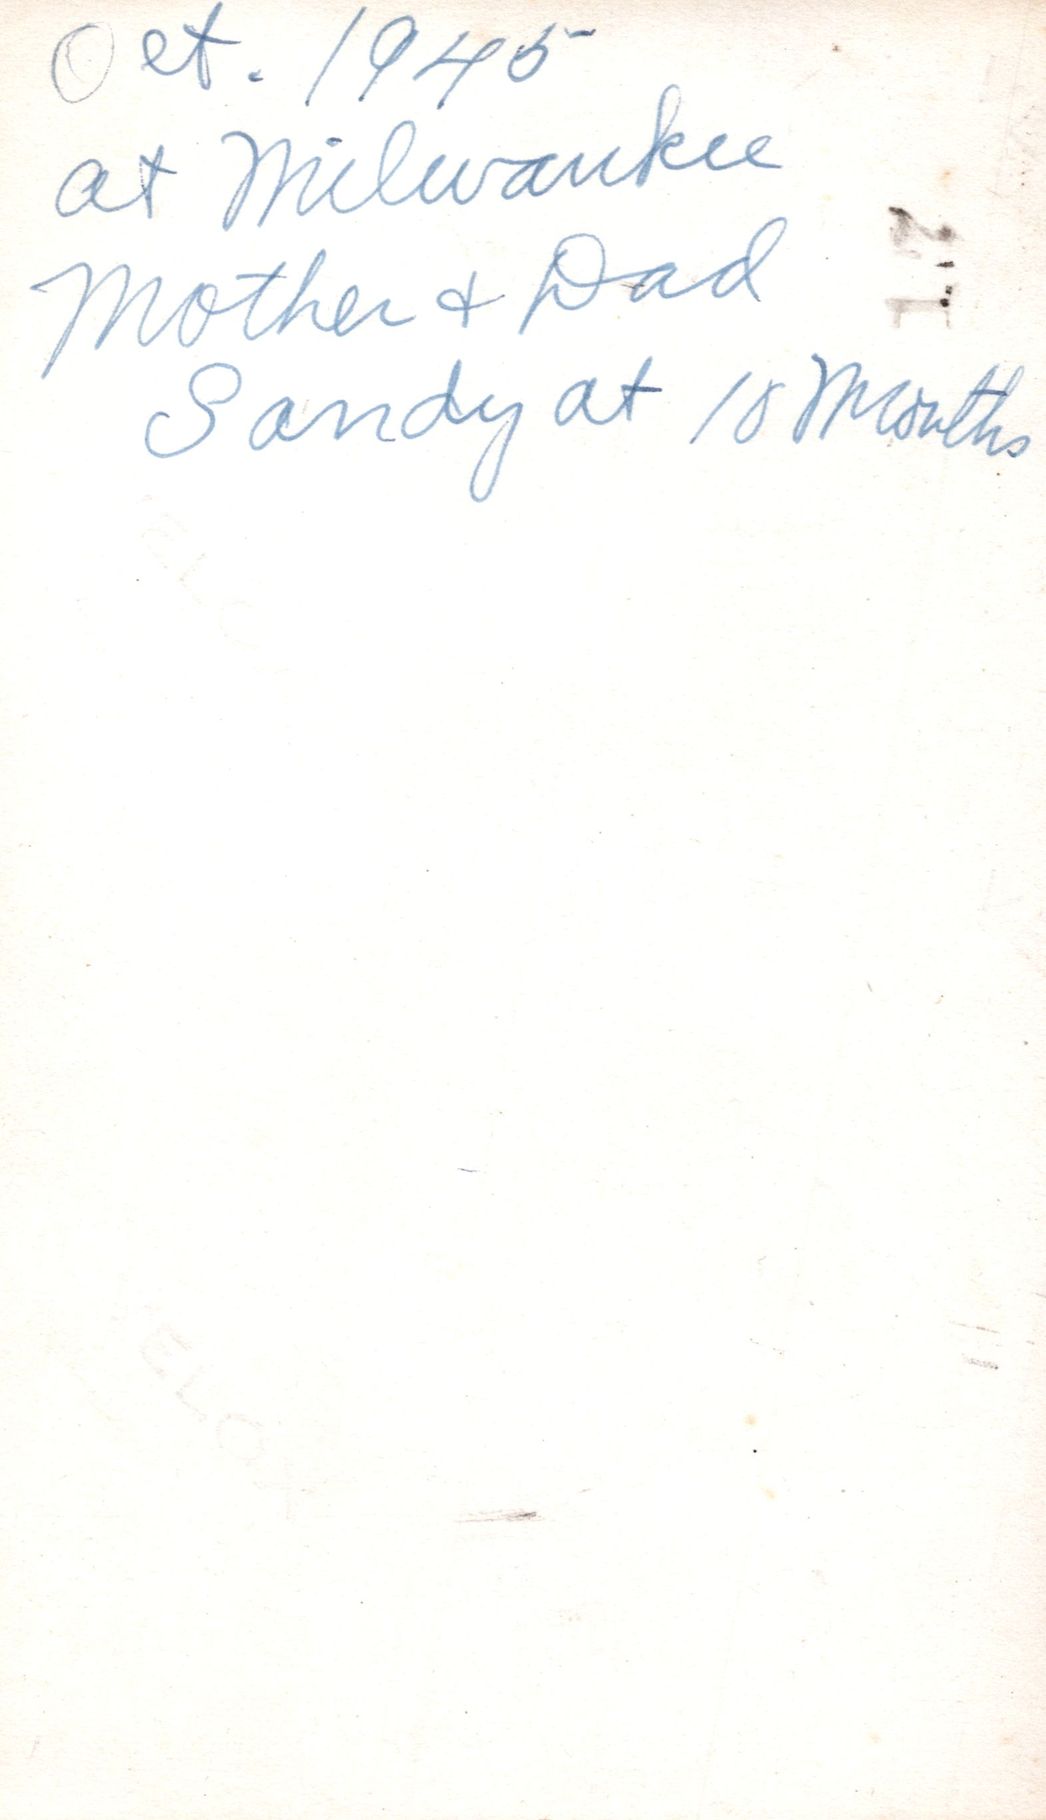 Oct. 1945
at Milwaukee
Mother & Dad
Sandy at 18 Months